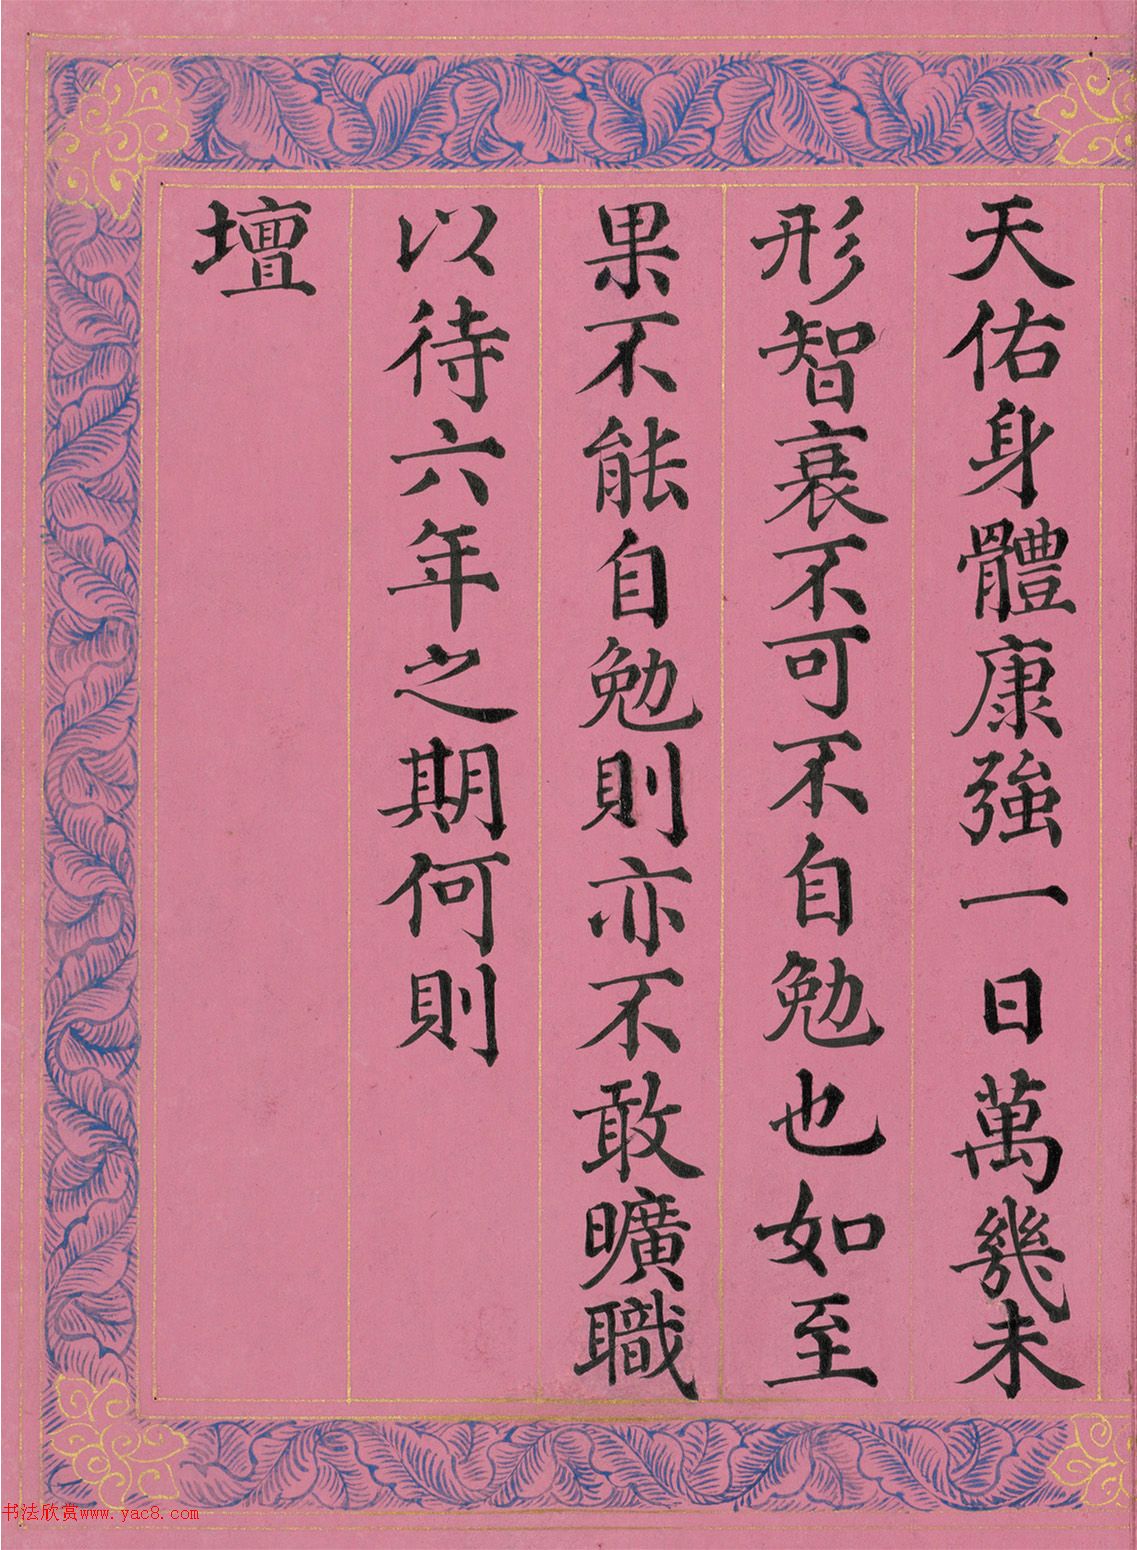 天佑身體康強一日萬幾未
形智衰不可不自勉也如至
果不能自勉則亦不敢曠職
以待六年之期何則
壇
书法欣赏www.yac8.com